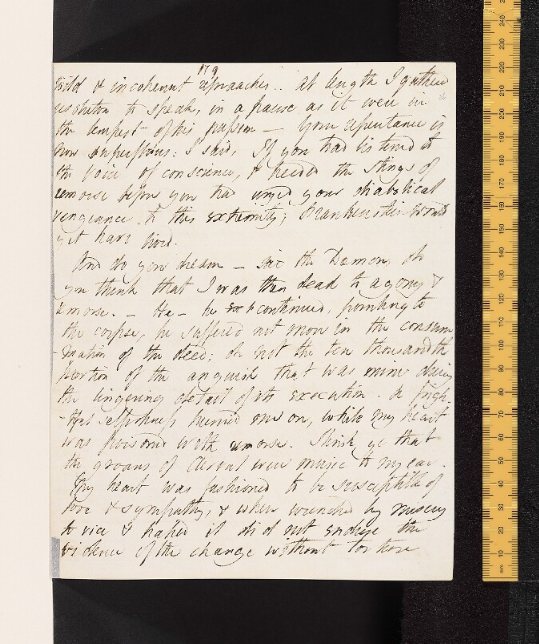 179
wild & incoherent reproaches.. at length I gathered
resolution to speak, in a pause as it were in
the tempest of his passion — Your repentance is
now superfluous: I said, If you had listened to
the voice of conscience, & heeded the stings of
remorse before you had urged your diabolical
vengeance to this extremity; Frankenstein would
yet have lived.
And do you dream — said the Demon, do
you think that I was then dead to agony &
remorse. — He — he continued, pointing to
the corpse, he suffered not more in the consum
-mation of the deed: oh not the ten thousandth
portion of the anguish that was mine during
the lingering detail of its execution. A frigh-
-tful selfishness hurried me on, while my heart
was poisoned with remorse. Think ye that
the groans of Clerval were music to my ear.
My heart was fashioned to be susceptible of
love & sympathy; & when wrenched by misery
to vice & hatred it did not endure the
violence of the change without torture